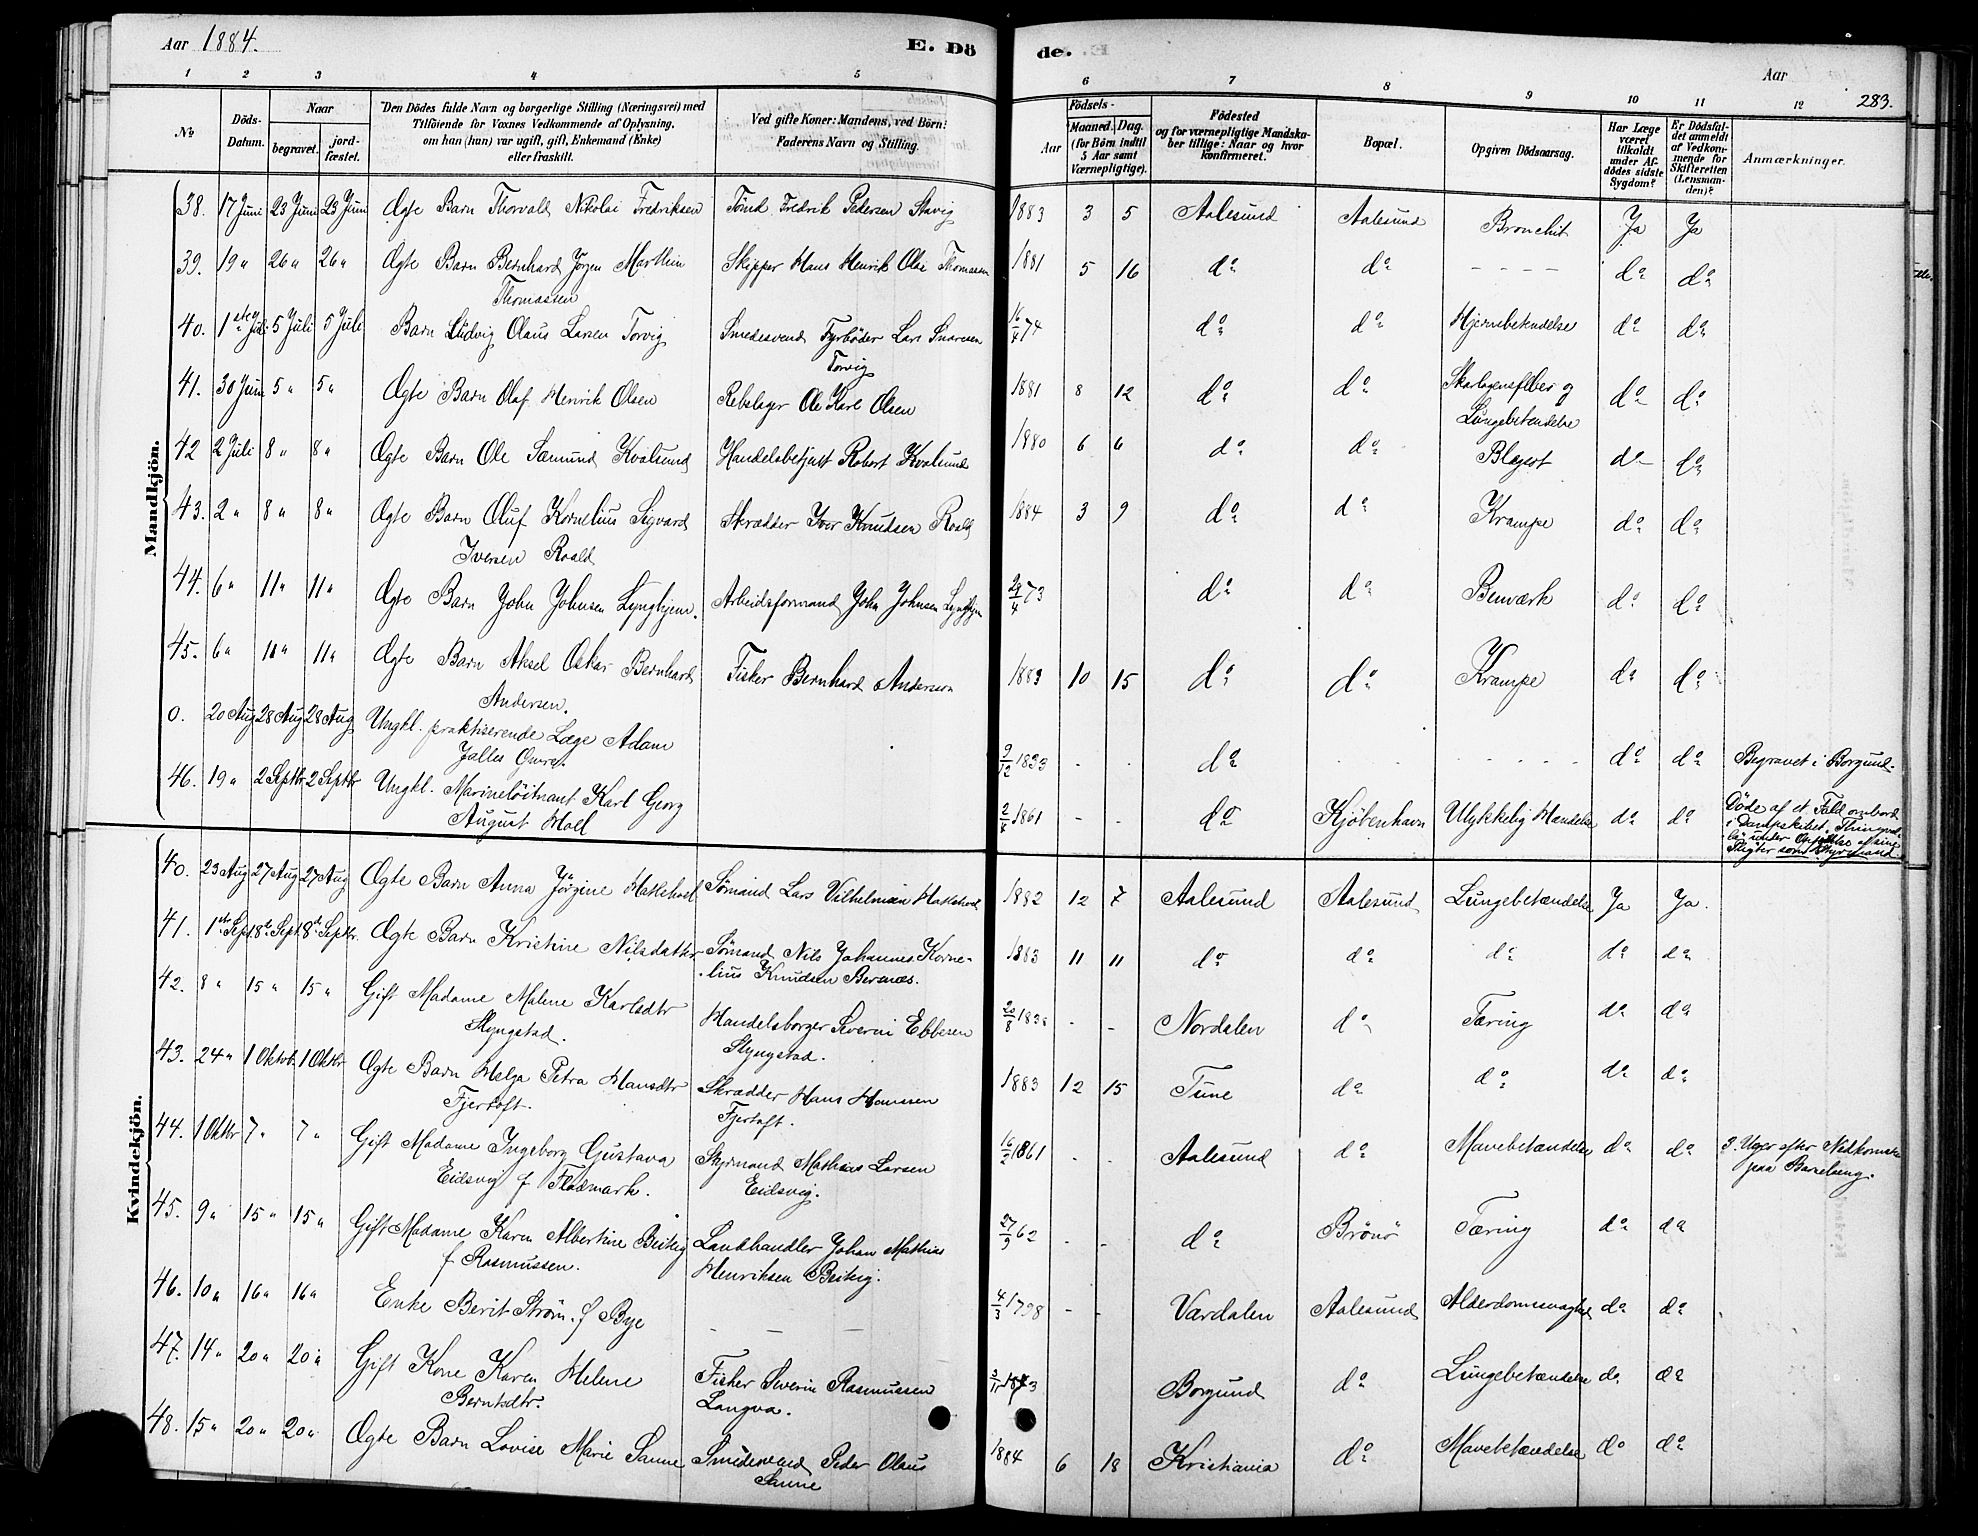 Aar 1884. E. Dö de. Aar 283.
1 2 3 4 5 6 7 8 9 10 11 12
No
Döds-Datum.
Naar
begravet. jord-fæstet.
Den Dödes fulde Navn og borgerlige Stilling (Næringsvei) med
Tilföiende for Voxnes Vedkommende af Oplysning,
om han (hun) var ugift, gift, Enkemand (Enke)
eller fraskilt.
Ved gifte Koner: Mandens, ved Börn:
Faderens Navn og Stilling.
Födsels-
Aar Maaned. Dag.
(for Börn indtil
5 Aar samt
Værnepligtige).
Födested
og for værnepligtige Mandska-
ber tillige: Naar og hvor
konfirmeret.
Bopæl.
Opgiven Dödsaarsag.
Har Læge
været
tilkaldt
under Af-
dödes sidste
Sygdom?
Er Dödsfal-
det anmeldt
af Vedkom-
mende for
Skifteretten
(Lensman-
den)?
Anmærkninger.
Mandkjön.
38. 17 Juni 23 Juni 23 Juni Ægte Barn Thorvald Nikolai Fredriksen Tönd. Fredrik Pedersen Stavig 1883 3 5 Aalesund Aalesund Bronchit Ja Ja
39. 19 " 26 " 26 " Ægte Barn Bernhard Jørgen Marthin Skipper Hans Henrik Olai Thomassen 1881 5 16 do do - - - - do do
Thomassen
40. 1ste Juli 5 Juli 5 Juli Barn Ludvig Olaus Larsen Torvig Smedesvend Fyrbøder Lars Knudsen 16/4 74 do do Hjernebetendelse do do
Torvig
41. 30 Juni 5 " 5 " Ægte Barn Olaf Henrik Olsen Rebslager Ole Karl Olsen 1881 8 12 do do Skarlagensfeber og do do
Lungebetendelse
42 2 Juli 8 " 8 " Ægte Barn Ole Samund Kvalsund Handelsbetjent Robert Kvalsund 1880 6 6 do do Blegsot do do
43. 2 " 8 " 8 " Ægte Barn Oluf Kornelius Sigvard Skrædder Iver Knudsen Roald 1884 3 9 do do Krampe do do
Iversen Roald
44. 6 " 11 " 11 " Ægte Barn John Johnsen Lynghjem. Arbeidsformand John Johnsen Lynghjem 29/4 73 do do Benværk do do
45. 6 " 11 " 11 " Ægte Barn Aksel Oskar Bernhard Fisker Bernhard Andersen 1883 10 15 do do Krampe do do
Andersen.
0. 20 Aug 28 Aug 28 Aug Ungkl. praktiserende Læge Adam 9/12 1833 - - do - - - - - do do Begravet i Borgund.
46. 19 " 2 Septbr 2 Septbr Ungkl. Marinelöitnant Karl Georg 2/4 1861 - - do Kjøbenhavn Ulykkelig Hændelse do do Døde af et Fald ombord
August Holl i Dampskibet
Kvindekjön.
40. 23 Aug 27 Aug 27 Aug Ægte Barn Anna Jörgine Hattehol Sømand Lars Vilhelmsen Hattehol 1882 12 7 Aalesund Aalesund Lungebetændelse Ja Ja.
41. 1ste Sept. 8de Sept. 8de Septbr. Ægte Barn Kristine Nilsdatter Sømand Nils Johannes Korne- 1883 11 11 do do do do do
lius Knudsen
42. 8 " 15 " 15 " Gift Madame Malene Karlsdtr Handelsborger Severin Ebbesen 20/8 - - Nordalen do Tæring do do
Slyngstad. Slyngstad.
43. 24 " 1 Oktob. 1 Oktbr Ægte Barn Helga Petra Hansdtr Skrædder Hans Hanssen 1883 12 15 Tune do do do do
Fjertoft. Fjertoft.
44. 1 Oktbr 7 " 7 " Gift Madame Ingeborg Gustava Styrmand Mathias Larsen 16/2 1861 - - Aalesund do Mavebetændelse do do 3 Uger efter Nedkomst
Eidsvig f Flodmark. Eidsvig. paa Barselseng.
45. 9 " 15 " 15 " Gift Madame Karen Albertine Landhandler Johan Mathias 27/9 62 - - do Brönö Tæring do do
f Rasmussen. Henriksen
46. 10 " 16 " 16 " Enke Berit Strøm. f Bye - - - 4/3 1798 - - Værdalen Aalesund Alderdomssvaghed do do
47. 14 " 20 " 20 " Gift Kone Karen Helene Fisker Severin Rasmussen Borgund do Lungebetændelse do do
Berntsdtr. Langva.
48. 15 " 20 " 20 " Ægte Barn Lovise Marie Sanne Smedesvend Peder Olaus 1884 6 18 Kristiania do Mavebetændelse do do
Sanne